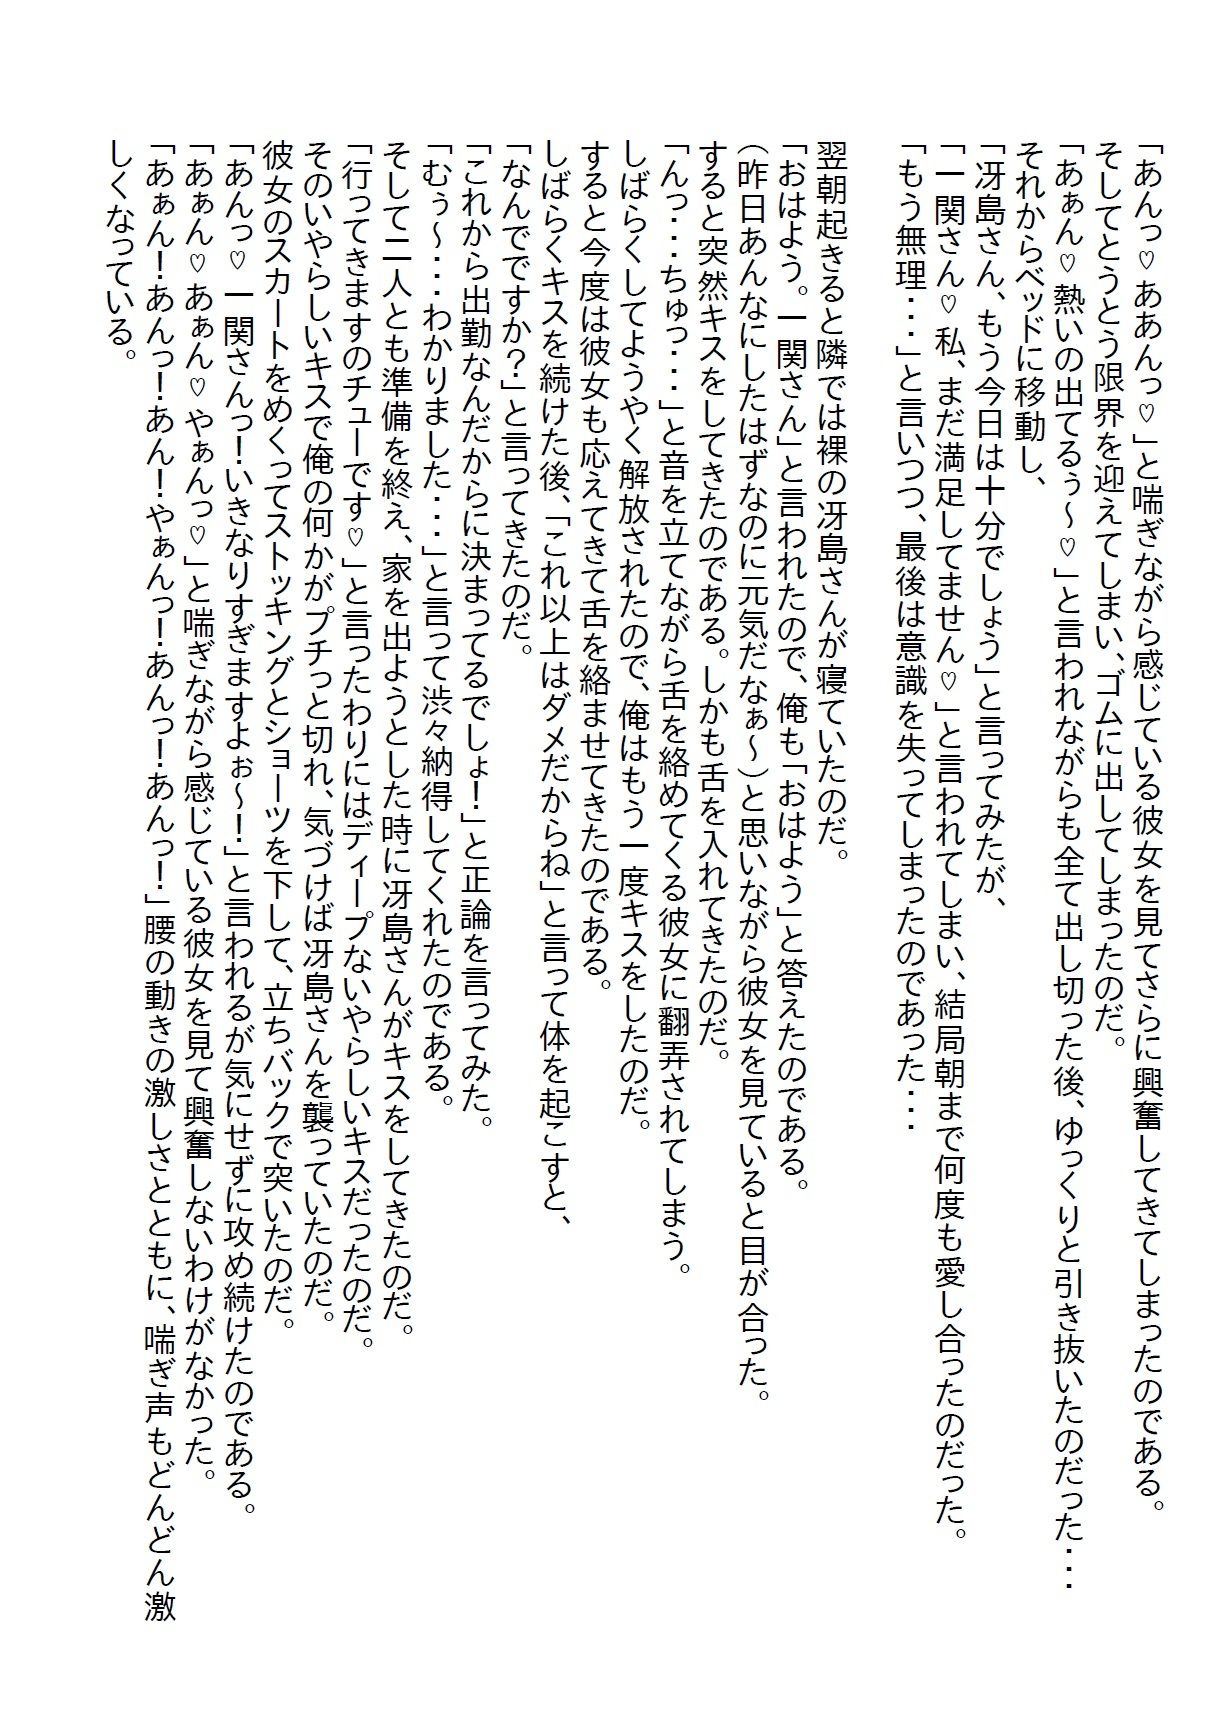 「あんっ♡ああんっ♡」と喘ぎながら感じている彼女を見てさらに興奮してきてしまったのである。
そしてとうとう限界を迎えてしまい、ゴムに出してしまったのだ。
「あぁん♡熱いの出てるぅ～♡」と言われながらも全て出し切った後、ゆっくりと引き抜いたのだった・・・
それからベッドに移動し、
「冴島さん、もう今日は十分でしょう」と言ってみたが、
「一関さん♡私、まだ満足してません♡」と言われてしまい、結局朝まで何度も愛し合ったのだった。
「もう無理・・・」と言いつつ、最後は意識を失ってしまったのであった・・・
翌朝起きると隣では裸の冴島さんが寝ていたのだ。
「おはよう。一関さん」と言われたので、俺も「おはよう」と答えたのである。
（昨日あんなにしたはずなのに元気だなぁ～）と思いながら彼女を見ていると目が合った。
すると突然キスをしてきたのである。しかも舌を入れてきたのだ。
「んっ・・・ちゅっ・・・」と音を立てながら舌を絡めてくる彼女に翻弄されてしまう。
しばらくしてようやく解放されたので、俺はもう一度キスをしたのだ。
すると今度は彼女も応えてきて舌を絡ませてきたのである。
しばらくキスを続けた後、「これ以上はダメだからね」と言って体を起こすと、
「なんでですか？」と言ってきたのだ。
「これから出勤なんだからに決まってるでしょ！」と正論を言ってみた。
「むぅ～・・・わかりました・・・」と言って渋々納得してくれたのである。
そして二人とも準備を終え、家を出ようとした時に冴島さんがキスをしてきたのだ。
「行ってきますのチューです♡」と言ったわりにはディープないやらしいキスだったのだ。
そのいやらしいキスで俺の何かがプチっと切れ、気づけば冴島さんを襲っていたのだ。
彼女のスカートをめくってストッキングとショーツを下して、立ちバックで突いたのだ。
「あんっ♡一関さんっ！いきなりすぎますよぉ～！」と言われるが気にせずに攻め続けたのである。
「あぁん♡あぁん♡やぁんっ♡」と喘ぎながら感じている彼女を見て興奮しないわけがなかった。
「あぁん！あんっ！あん！やぁんっ！あんっ！あんっ！」腰の動きの激しさとともに、喘ぎ声もどんどん激
しくなっている。